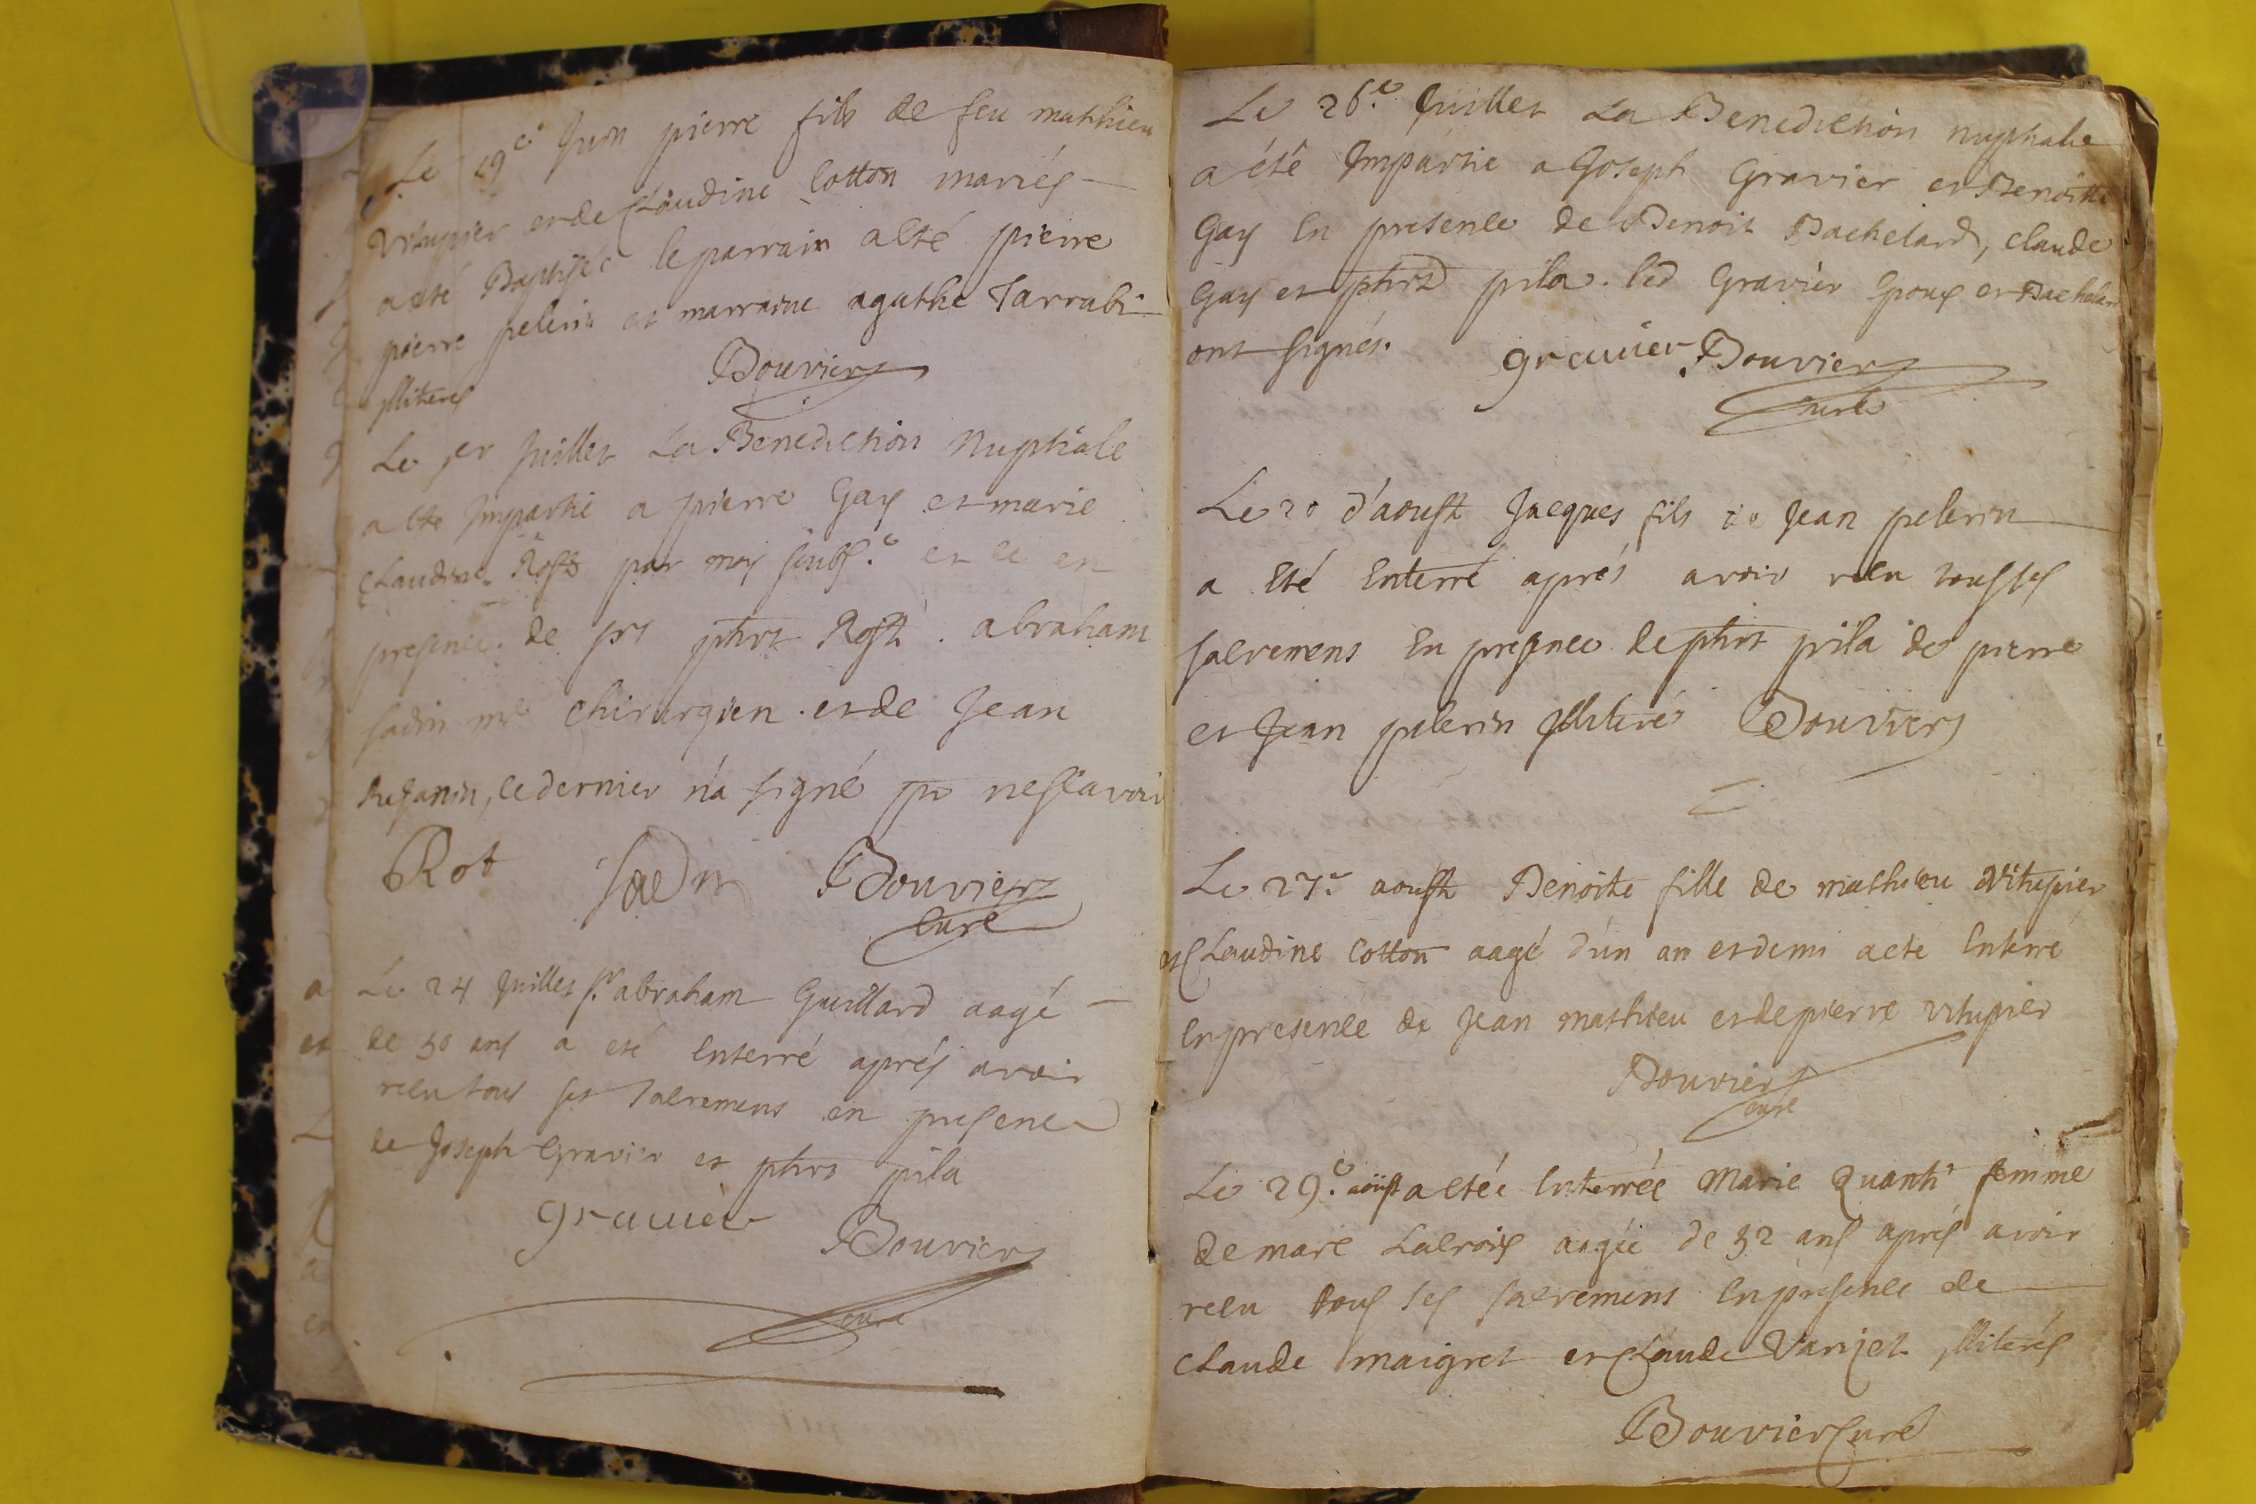 Le 19e Juin pierre fils de feu matthieu
Vitupier et de Claudine Cotton mariés
a eté Baptisé le parrain a eté pierre
pierre pelerin et marraine agathe Tarrabi
illiterés Bouvier
Le 1er Juillet La Benediction Nuptiale
a eté Impartie a pierre Gay et marie
Claudine Rost par moy soubs.é et ce en
presence de phrt Rost . abraham
sadin me chirurgien . et de Jean
Rejanin, ce dernier n'a signé pr ne scavoir
Rot Sadin Bouvier
Curé
Le 24 Juillet sr abraham Guillard aagé
de 50 ans a eté enterré aprés avoir
receu tous ses sacremens en presence
de Joseph Gravier et phrt pila
gravier Bouvier
curé
Le 26.e Juillet La Benediction nuptiale
a été Impartie a Joseph Gravier et Benoitte
Gay En presence de Benoit Bachelard, claude
Gay et phrt pila . led Gravier Epoux et Bachelard
ont signés. gravier Bouvier
curé
Le 20 d'aoust Jacques fils de Jean pelerin
a eté enterré aprés avoir receu tous ses
sacremens En presence de phrt pila de pierre
et Jean pelerin illiterés Bouvier
Le 27e aoust Benoite fille de mathieu Vitupier
et Claudine Cotton aagé d'un an et demi a eté Enterré
En presence de Jean mathieu et de pierre vitupier
Bouvier
curé
Le 29.e aoust a etée Enterrée Marie Quanti femme
de marc Lacroix aagée de 32 ans aprés avoir
receu tous ses sacremens En presence de
claude maigret et Claude Vanjet illiterés
Bouvier Curé